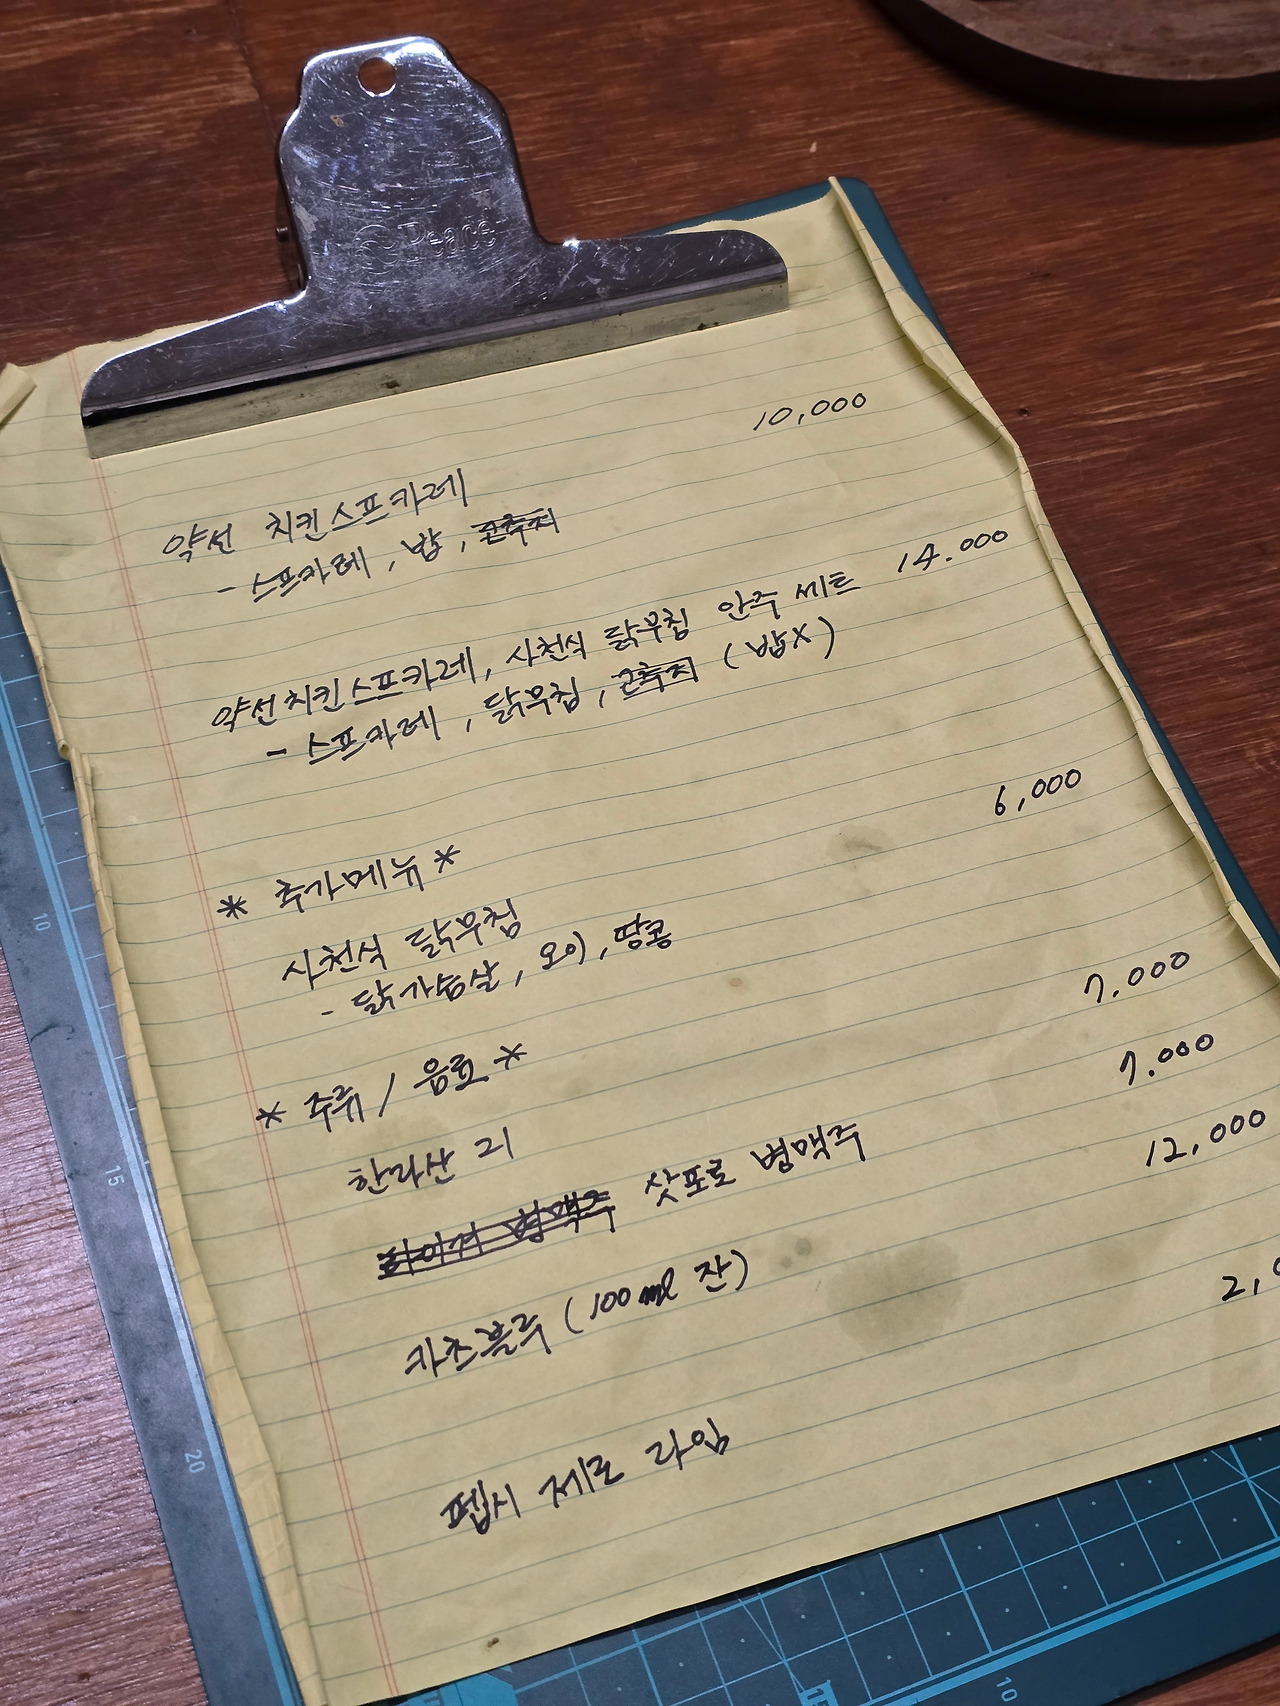 Peace
약선 치킨스프카레 10,000
- 스프카레, 밥,
약선치킨스프카레, 사천식 닭무침 안주 세트 14.000
- 스프카레, 닭무침, (밥X)
* 추가메뉴 *
사천식 닭무침 6,000
- 닭가슴살, 오이, 땅콩
* 주류 / 음료 *
한라산 21 7.000
하이거 병맥주 삿포로 병맥주 7.000
카츠블루 (100ml 잔) 12,000
펩시 제로 라임 2,0
10
15
20
10